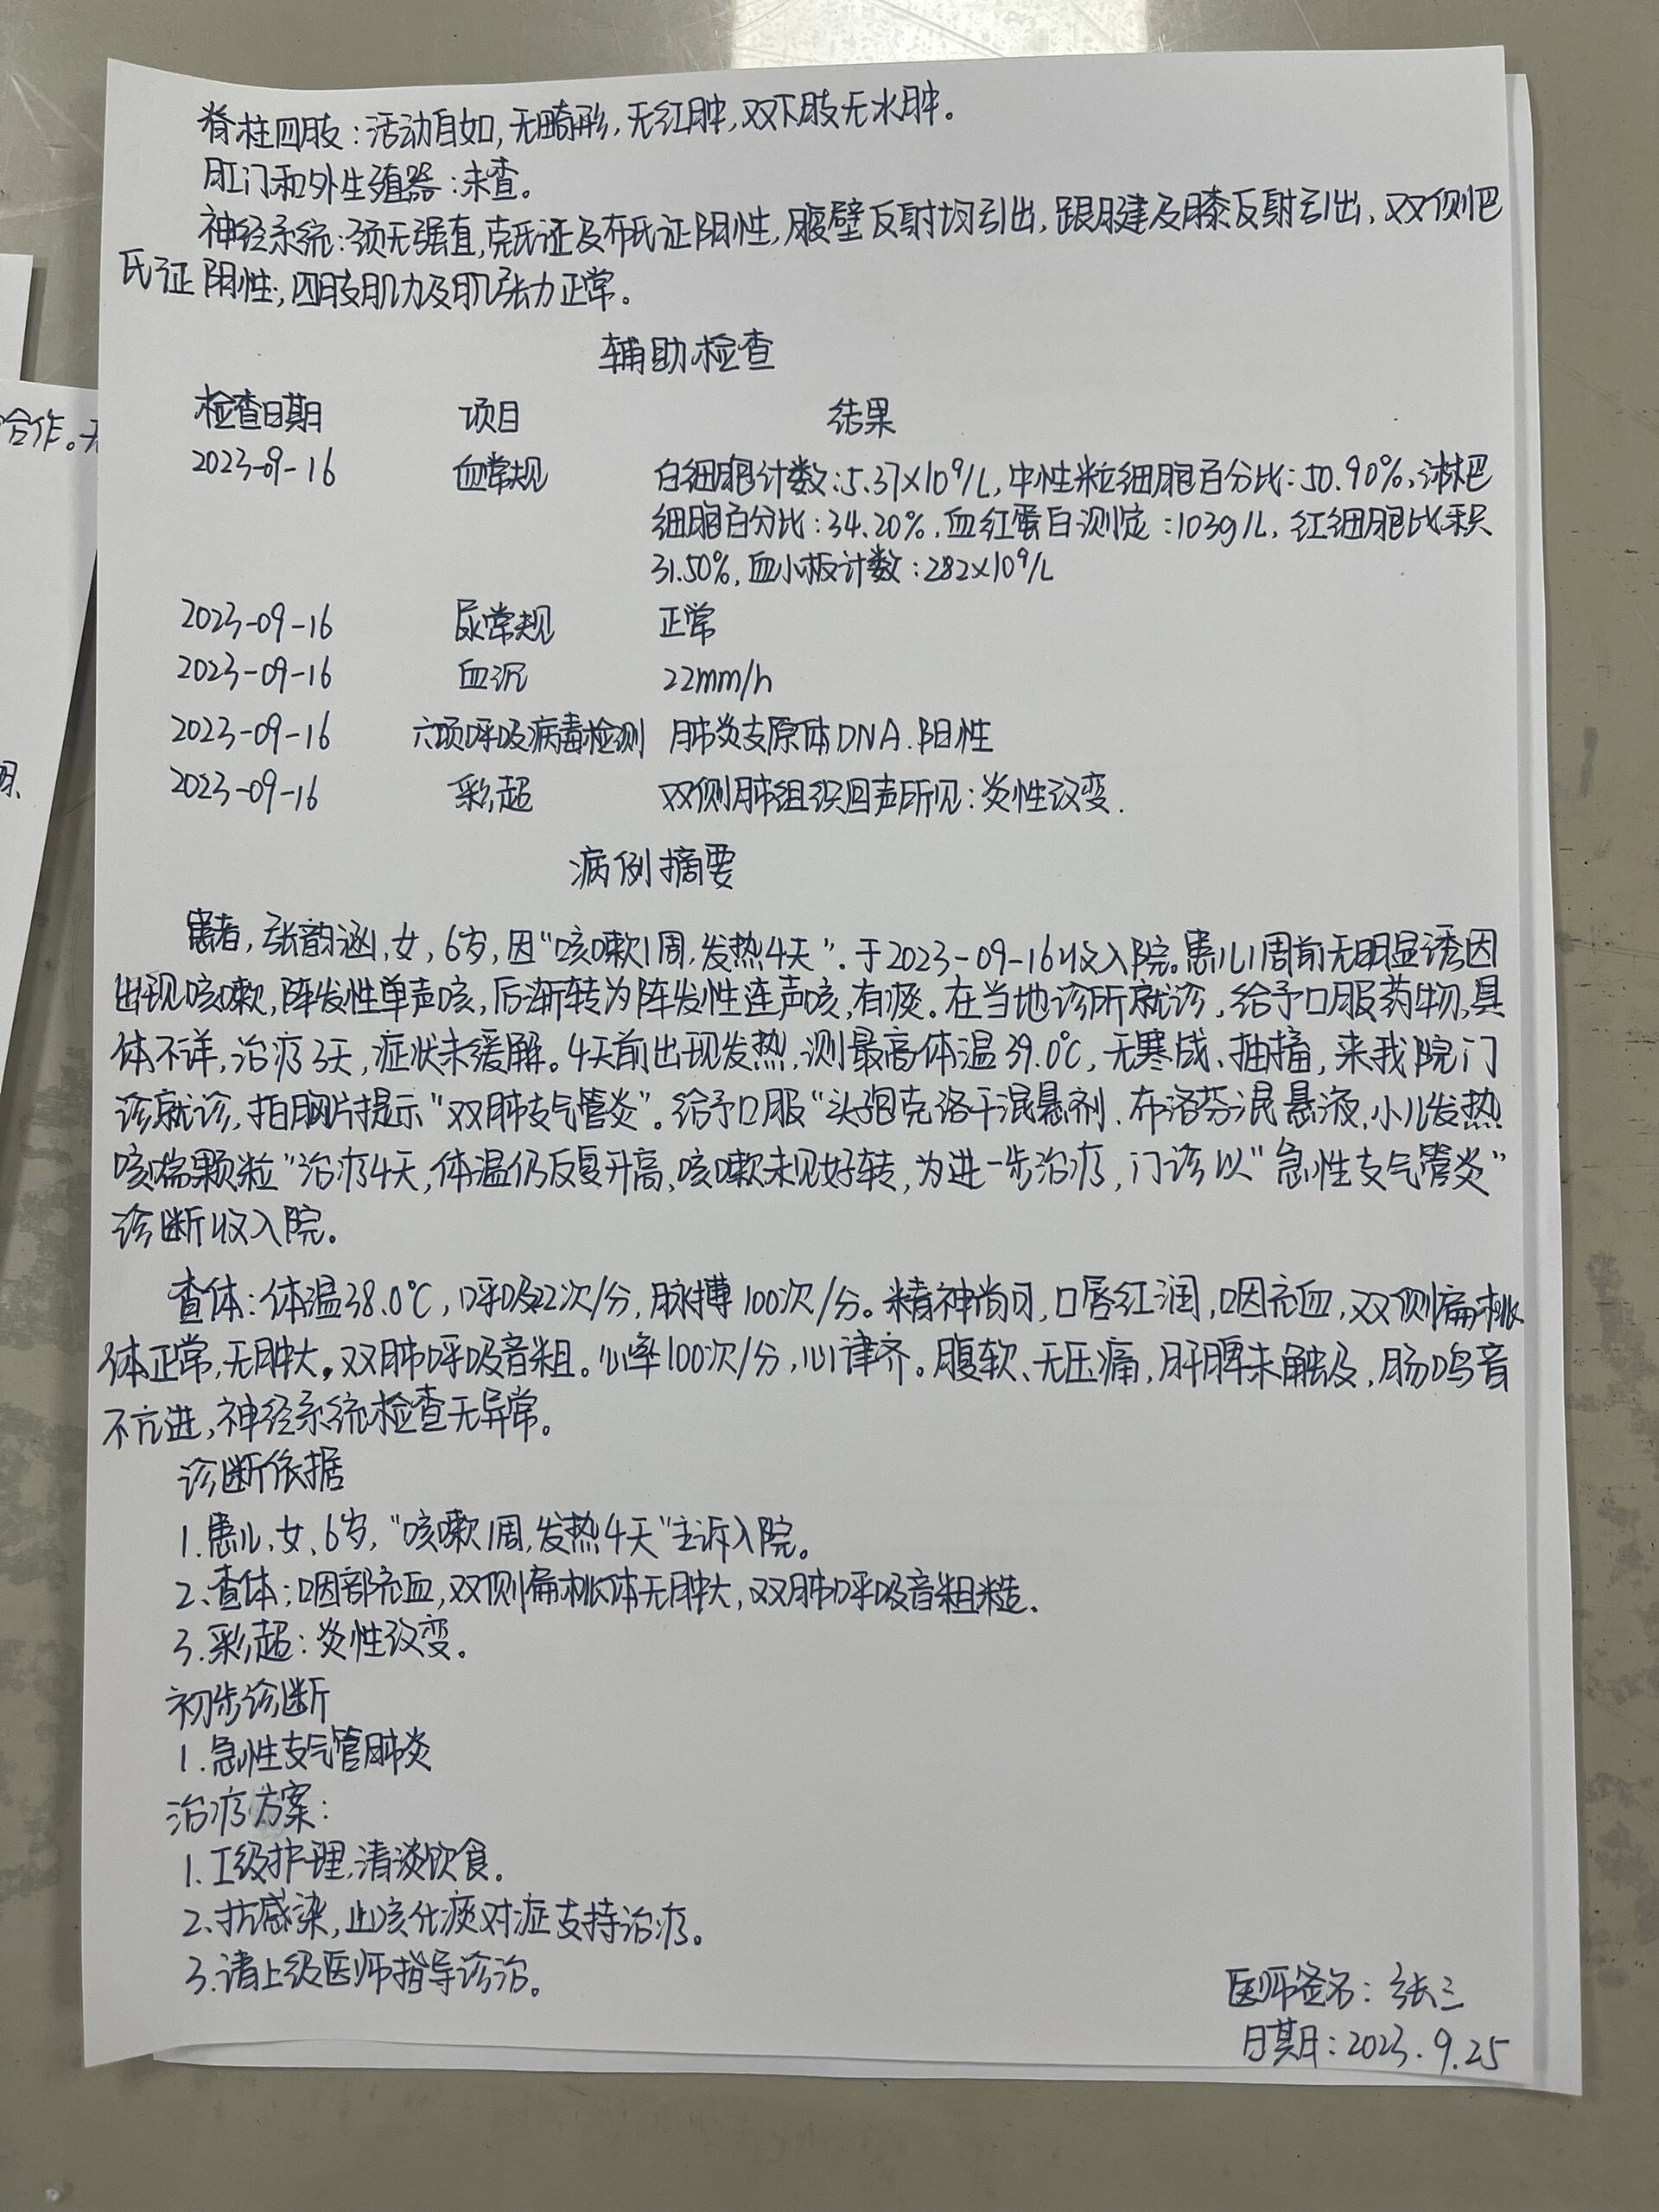 脊柱四肢：活动自如，无畸形，无红肿，双下肢无水肿。
肛门和外生殖器：未查。
神经系统：颈无强直，克氏证及布氏证阴性，腹壁反射均引出，跟腱及膝反射引出、双侧巴
氏证阴性，四肢肌力及肌张力正常。
辅助检查
检查日期 项目 结果
2023-09-16 血常规 白细胞计数：5.37×10⁹/L，中性粒细胞百分比：50.90%，淋巴
细胞百分比：34.20%，血红蛋白测定：103g/L，红细胞比积
31.50%，血小板计数：282×10⁹/L
2023-09-16 尿常规 正常
2023-09-16 血沉 22mm/h
2023-09-16 六项呼吸病毒检测 肺炎支原体DNA.阳性
2023-09-16 彩超 双侧肺组织回声所见：炎性改变.
病例摘要
患者，张韵涵，女，6岁，因“咳嗽1周，发热4天”.于2023-09-16收入院。患儿1周前无明显诱因
出现咳嗽，阵发性单声咳，后渐转为阵发性连声咳，有痰。在当地诊所就诊，给予口服药物，具
体不详，治疗3天，症状未缓解。4天前出现发热，测最高体温39.0℃，无寒战、抽搐，来我院门
诊就诊，拍胸片提示“双肺支气管炎”。给予口服“头孢克洛干混悬剂、布洛芬混悬液、小儿发热
咳喘颗粒”治疗4天，体温仍反复升高，咳嗽未见好转，为进一步治疗，门诊以“急性支气管炎”
诊断收入院。
查体：体温38.0℃，呼吸22次/分，脉搏100次/分。精神尚可，口唇红润，咽充血，双侧扁桃
体正常，无肿大。双肺呼吸音粗。心率100次/分，心律齐。腹软、无压痛，肝脾未触及，肠鸣音
不亢进，神经系统检查无异常。
诊断依据
1.患儿、女、6岁，“咳嗽1周，发热4天”主诉入院。
2、查体；咽部充血，双侧扁桃体无肿大，双肺呼吸音粗糙、
3.彩超：炎性改变。
初步诊断
1.急性支气管肺炎
治疗方案：
1.I级护理，清淡饮食。
2、抗感染，止咳化痰对症支持治疗。
3.请上级医师指导诊治。
医师签名：张三
日期：2023.9.25
合作。无